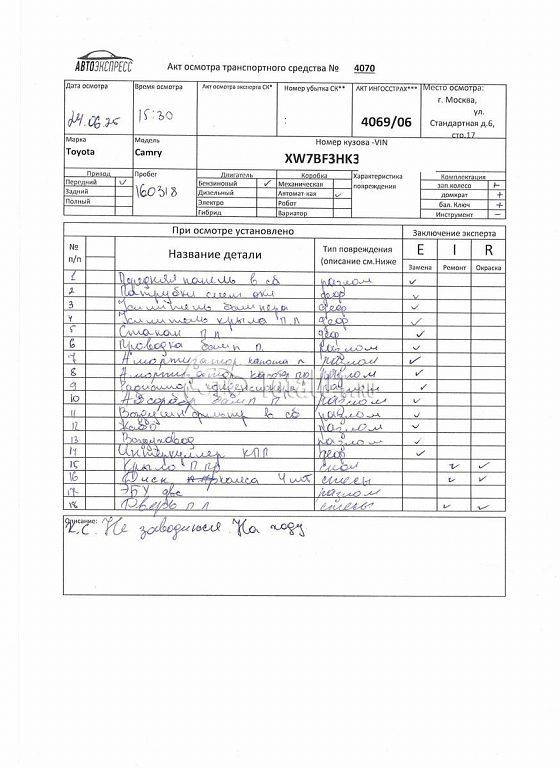 АВТОЭКСПРЕСС
Акт осмотра транспортного средства № 4070
Дата осмотра Время осмотра Акт осмотра эксперта СК* Номер убытка СК** АКТ ИНГОССТРАХ*** Место осмотра:
24.06.25 15:30 : 4069/06 г. Москва, ул. Стандартная д.6, стр.17
Марка Модель Номер кузова -VIN
Toyota Camry XW7BF3HK3
Привод Пробег Двигатель Коробка Характеристика повреждения Комплектация
Передний ✓ 160318 Бензиновый ✓ Механическая зап.колесо +
Задний Дизельный Автомат-кая ✓ домкрат +
Полный Электро Робот бал. Ключ +
Гибрид Вариатор Инструмент –
При осмотре установлено Заключение эксперта
№ п/п Название детали Тип повреждения (описание см.Ниже E I R
Замена Ремонт Окраска
1 Передняя панель в сб разлом ✓
2 Патрубки сист охл деф ✓
3 Усилитель бампера деф ✓
4 Усилитель крыла П.Л деф ✓
5 Стакан П Л деф ✓
6 Проводка бамп п. разлом ✓
7 Амортизатор капота л разлом ✓
8 Амортизатор капота пр разлом ✓
9 ✓
10 Абсорбер бамп п. разлом ✓
11 в сб разлом ✓
12 разлом ✓
13 Воздуховод разлом ✓
14 Интеркуллер КПП деф ✓
15 Крыло П пр скол ✓ ✓
16 Диск колеса 4 шт стесы ✓ ✓
17 ЭБУ двс разлом
18 Дверь п л стесы ✓ ✓
Описание:
К.С. Не заводится. На ходу